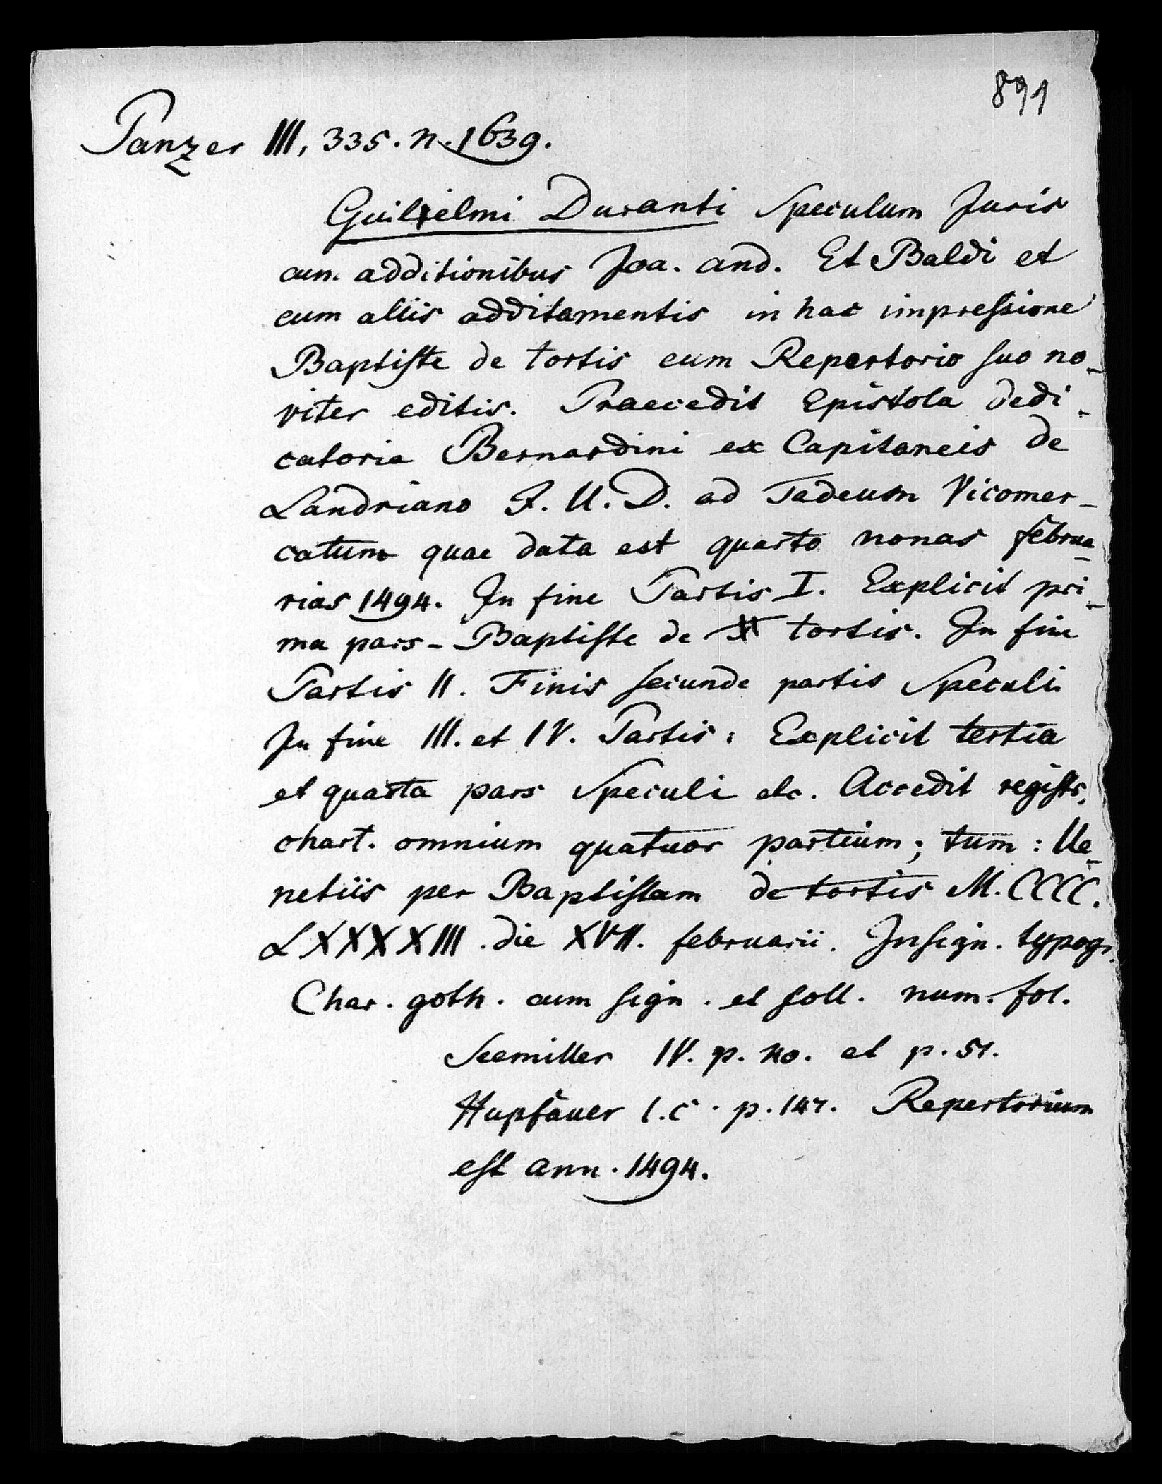 891
Panzer III, 335. n. 1639.
Guilielmi Duranti Speculum Juris
cum additionibus Joa. and. Et Baldi et
cum aliis additamentis in hac impressione
Baptiste de tortis cum Repertorio suo no-
viter editis. Praecedit Epistola dedi-
catoria Bernardini ex Capitaneis de
Landriano J. U. D. ad Tadeum Vicomer-
catum quae data est quarto nonas februa-
rias 1494. In fine Partis I. Explicit pri-
ma pars - Baptiste de tortis. In fine
Partis II. Finis secunde partis Speculi
In fine III. et IV. Partis: Explicit tertia
et quarta pars Speculi etc. Accedit registr.
chart. omnium quatuor partium; tum: Ve-
netiis per Baptistam de tortis M. CCCC.
LXXXXIII. die XVII. februarii. Insign. typogr.
Char. goth. cum sign. et foll. num. fol.
Seemiller IV. p. 20. et p. 51.
Hupfauer l. c. p. 147. Repertorium
est ann. 1494.